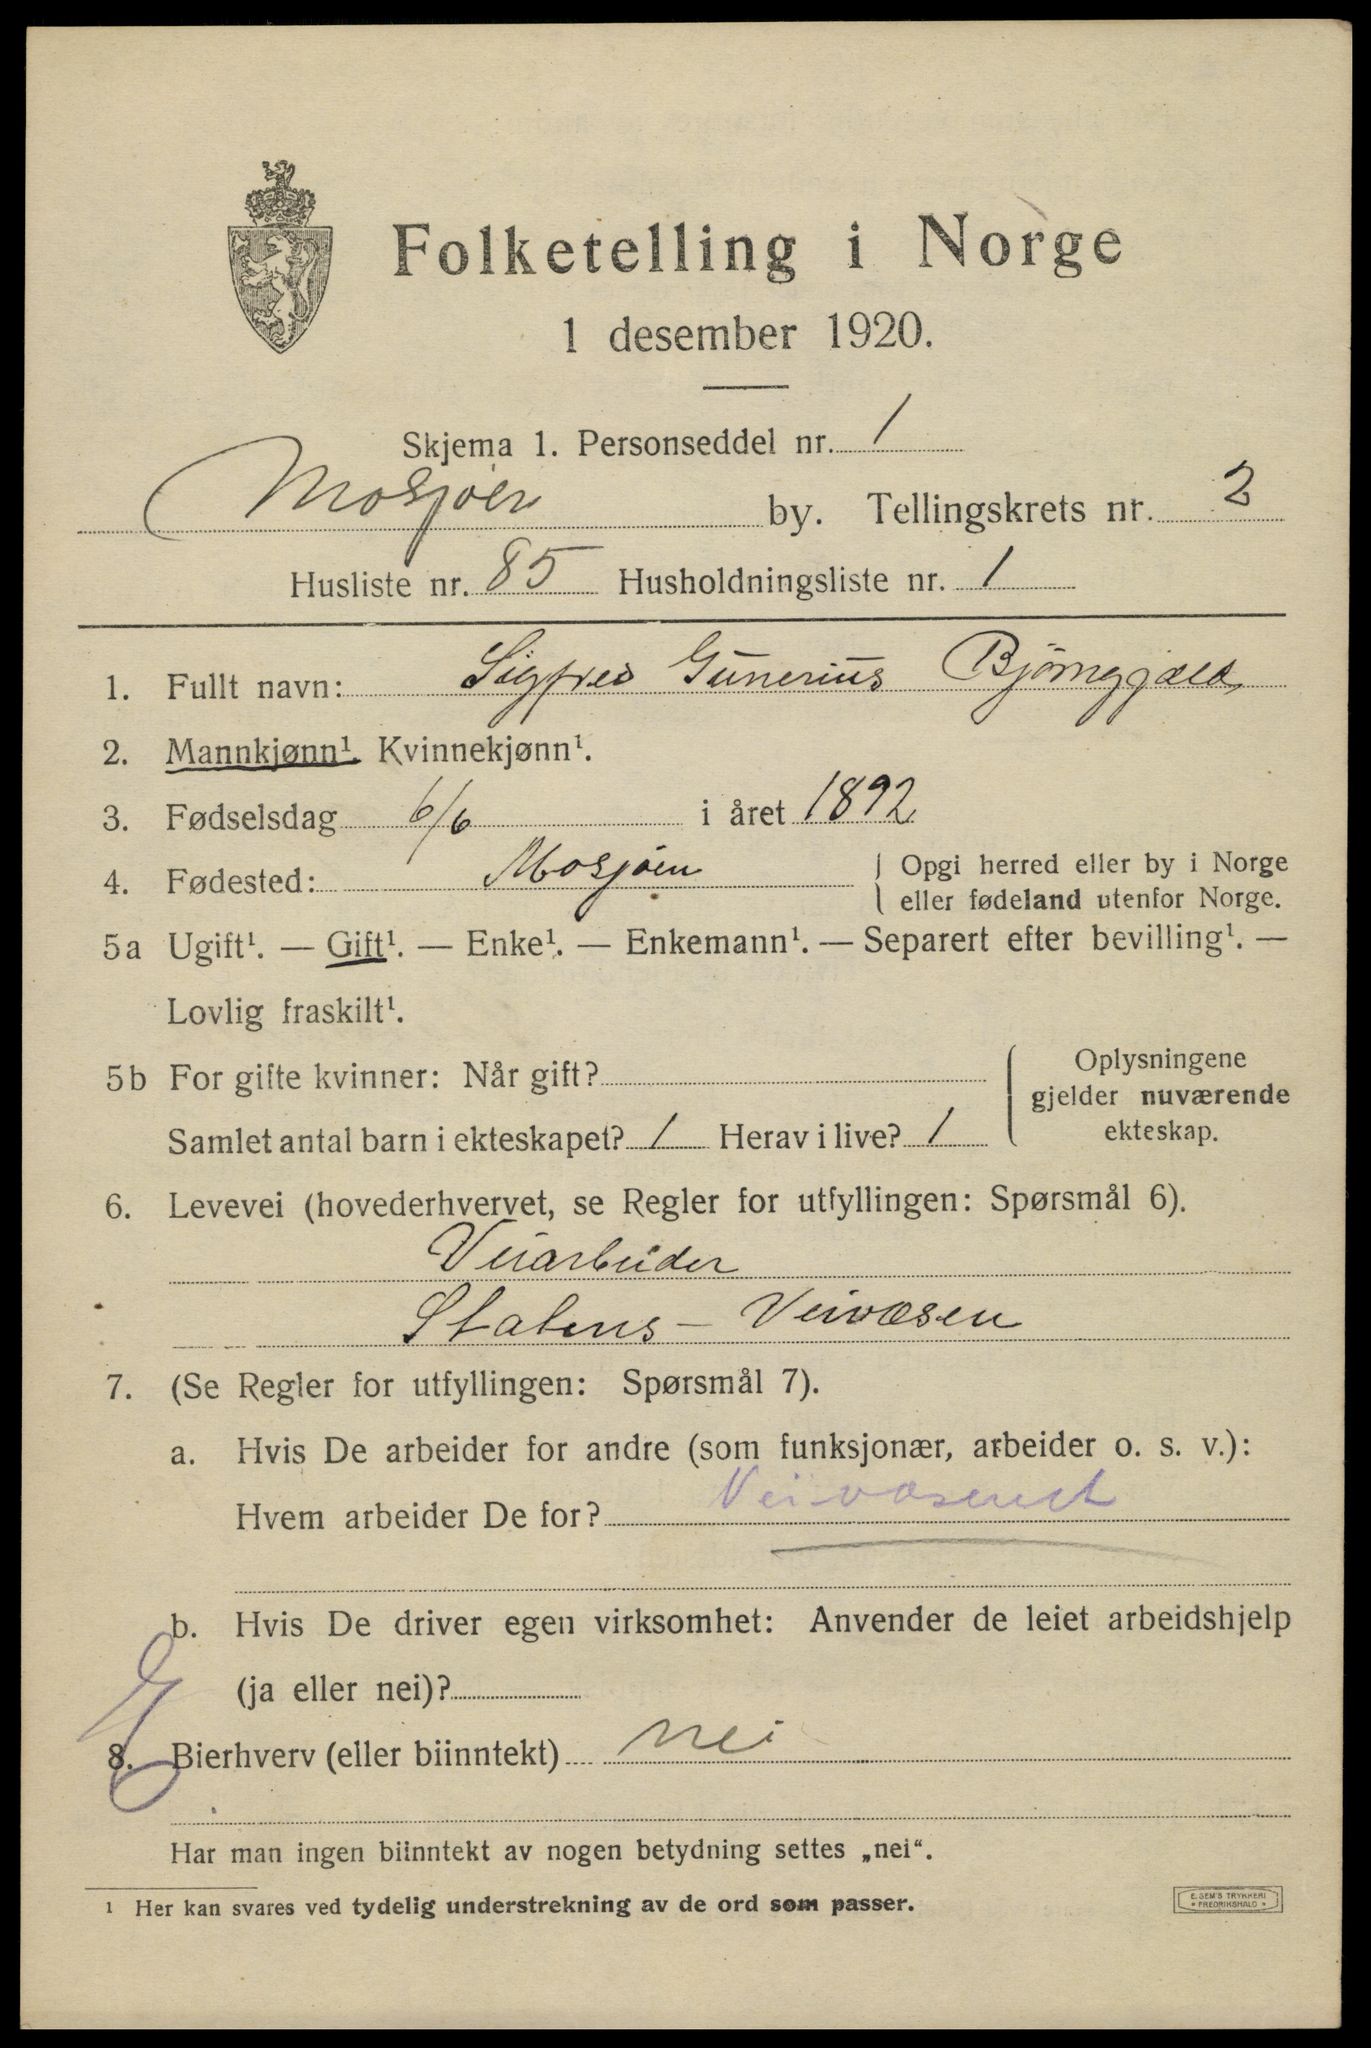 Folketelling i Norge
1 desember 1920.
Skjema 1. Personseddel nr. 1
Mosjøen by. Tellingskrets nr. 2
Husliste nr. 85 Husholdningsliste nr. 1
1. Fullt navn: Sigfred Gunerius Bjørngjæld
2. Mannkjønn¹. Kvinnekjønn¹.
3. Fødselsdag 6/6 i året 1892
4. Fødested: Mosjøen
Opgi herred eller by i Norge
eller fødeland utenfor Norge.
5a Ugift¹. — Gift¹. — Enke¹. — Enkemann¹. — Separert efter bevilling¹. —
Lovlig fraskilt¹.
5b For gifte kvinner: Når gift?
Samlet antal barn i ekteskapet? 1 Herav i live? 1
Oplysningene
gjelder nuværende
ekteskap.
6. Levevei (hovederhvervet, se Regler for utfyllingen: Spørsmål 6).
Veiarbeider
Statens - Veivæsen
7. (Se Regler for utfyllingen: Spørsmål 7).
a. Hvis De arbeider for andre (som funksjonær, arbeider o. s. v.):
Hvem arbeider De for? Veivæsenet
b. Hvis De driver egen virksomhet: Anvender de leiet arbeidshjelp
(ja eller nei)?
8. Bierhverv (eller biinntekt) nei
Har man ingen biinntekt av nogen betydning settes „nei“.
¹ Her kan svares ved tydelig understrekning av de ord som passer.
E. SEM'S TRYKKERI
* FREDRIKSHALD *